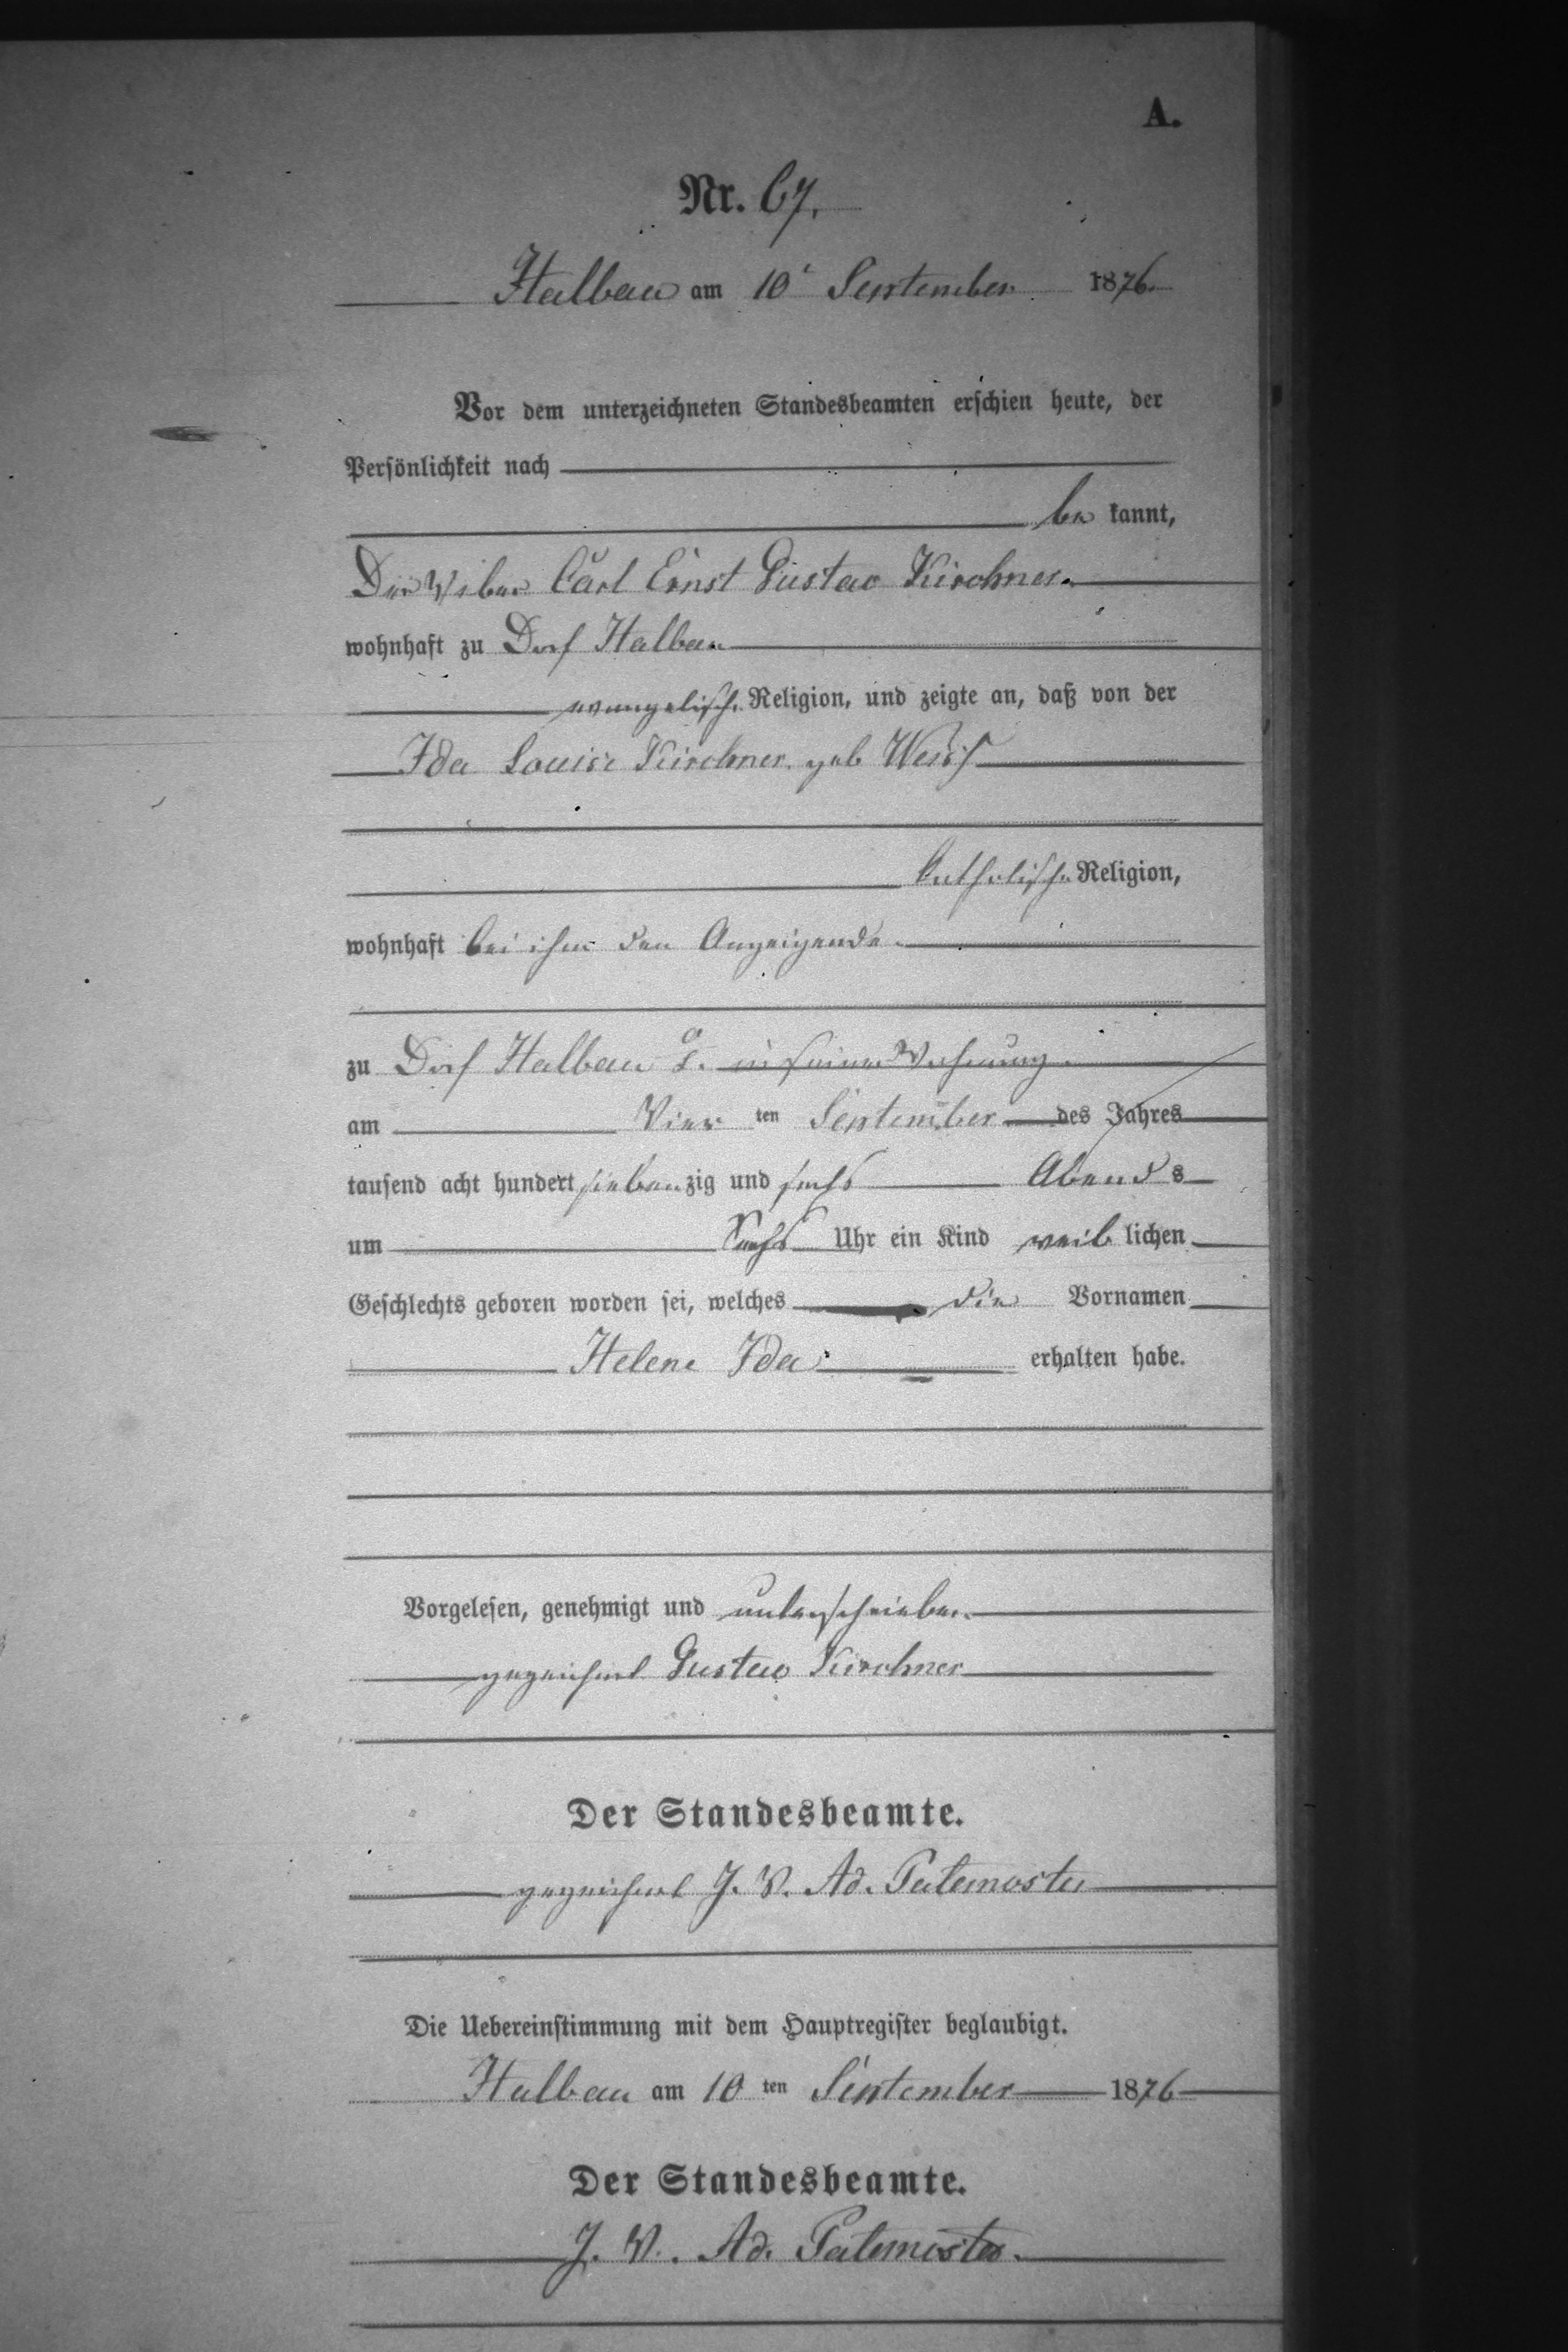 A.
Nr. 67.
Halbau am 10t September 1876.
Vor dem unterzeichneten Standesbeamten erschien heute, der
Persönlichkeit nach
be kannt,
Der Weber Carl Ernst Gustav Kirchner
wohnhaft zu Dorf Halbau
evangelischer Religion, und zeigte an, daß von der
Ida Louise Kirchner geb Weiß
katholischer Religion,
wohnhaft bei ihm den Anzeigende
zu Dorf Halbau in seiner Wohnung
am Vier ten September des Jahres
tausend acht hundert sieben zig und sechs Abend s
um Sechs Uhr ein Kind weib lichen
Geschlechts geboren worden sei, welches die Vornamen
Helene Ida erhalten habe.
Vorgelesen, genehmigt und unterschrieben
gezeichnet Gustav Kirchner
Der Standesbeamte.
gezeichnet J. V. Ad. Paternoster
Die Uebereinstimmung mit dem Hauptregister beglaubigt.
Halbau am 10 ten September 1876
Der Standesbeamte.
J. V. Ad. Paternoster.